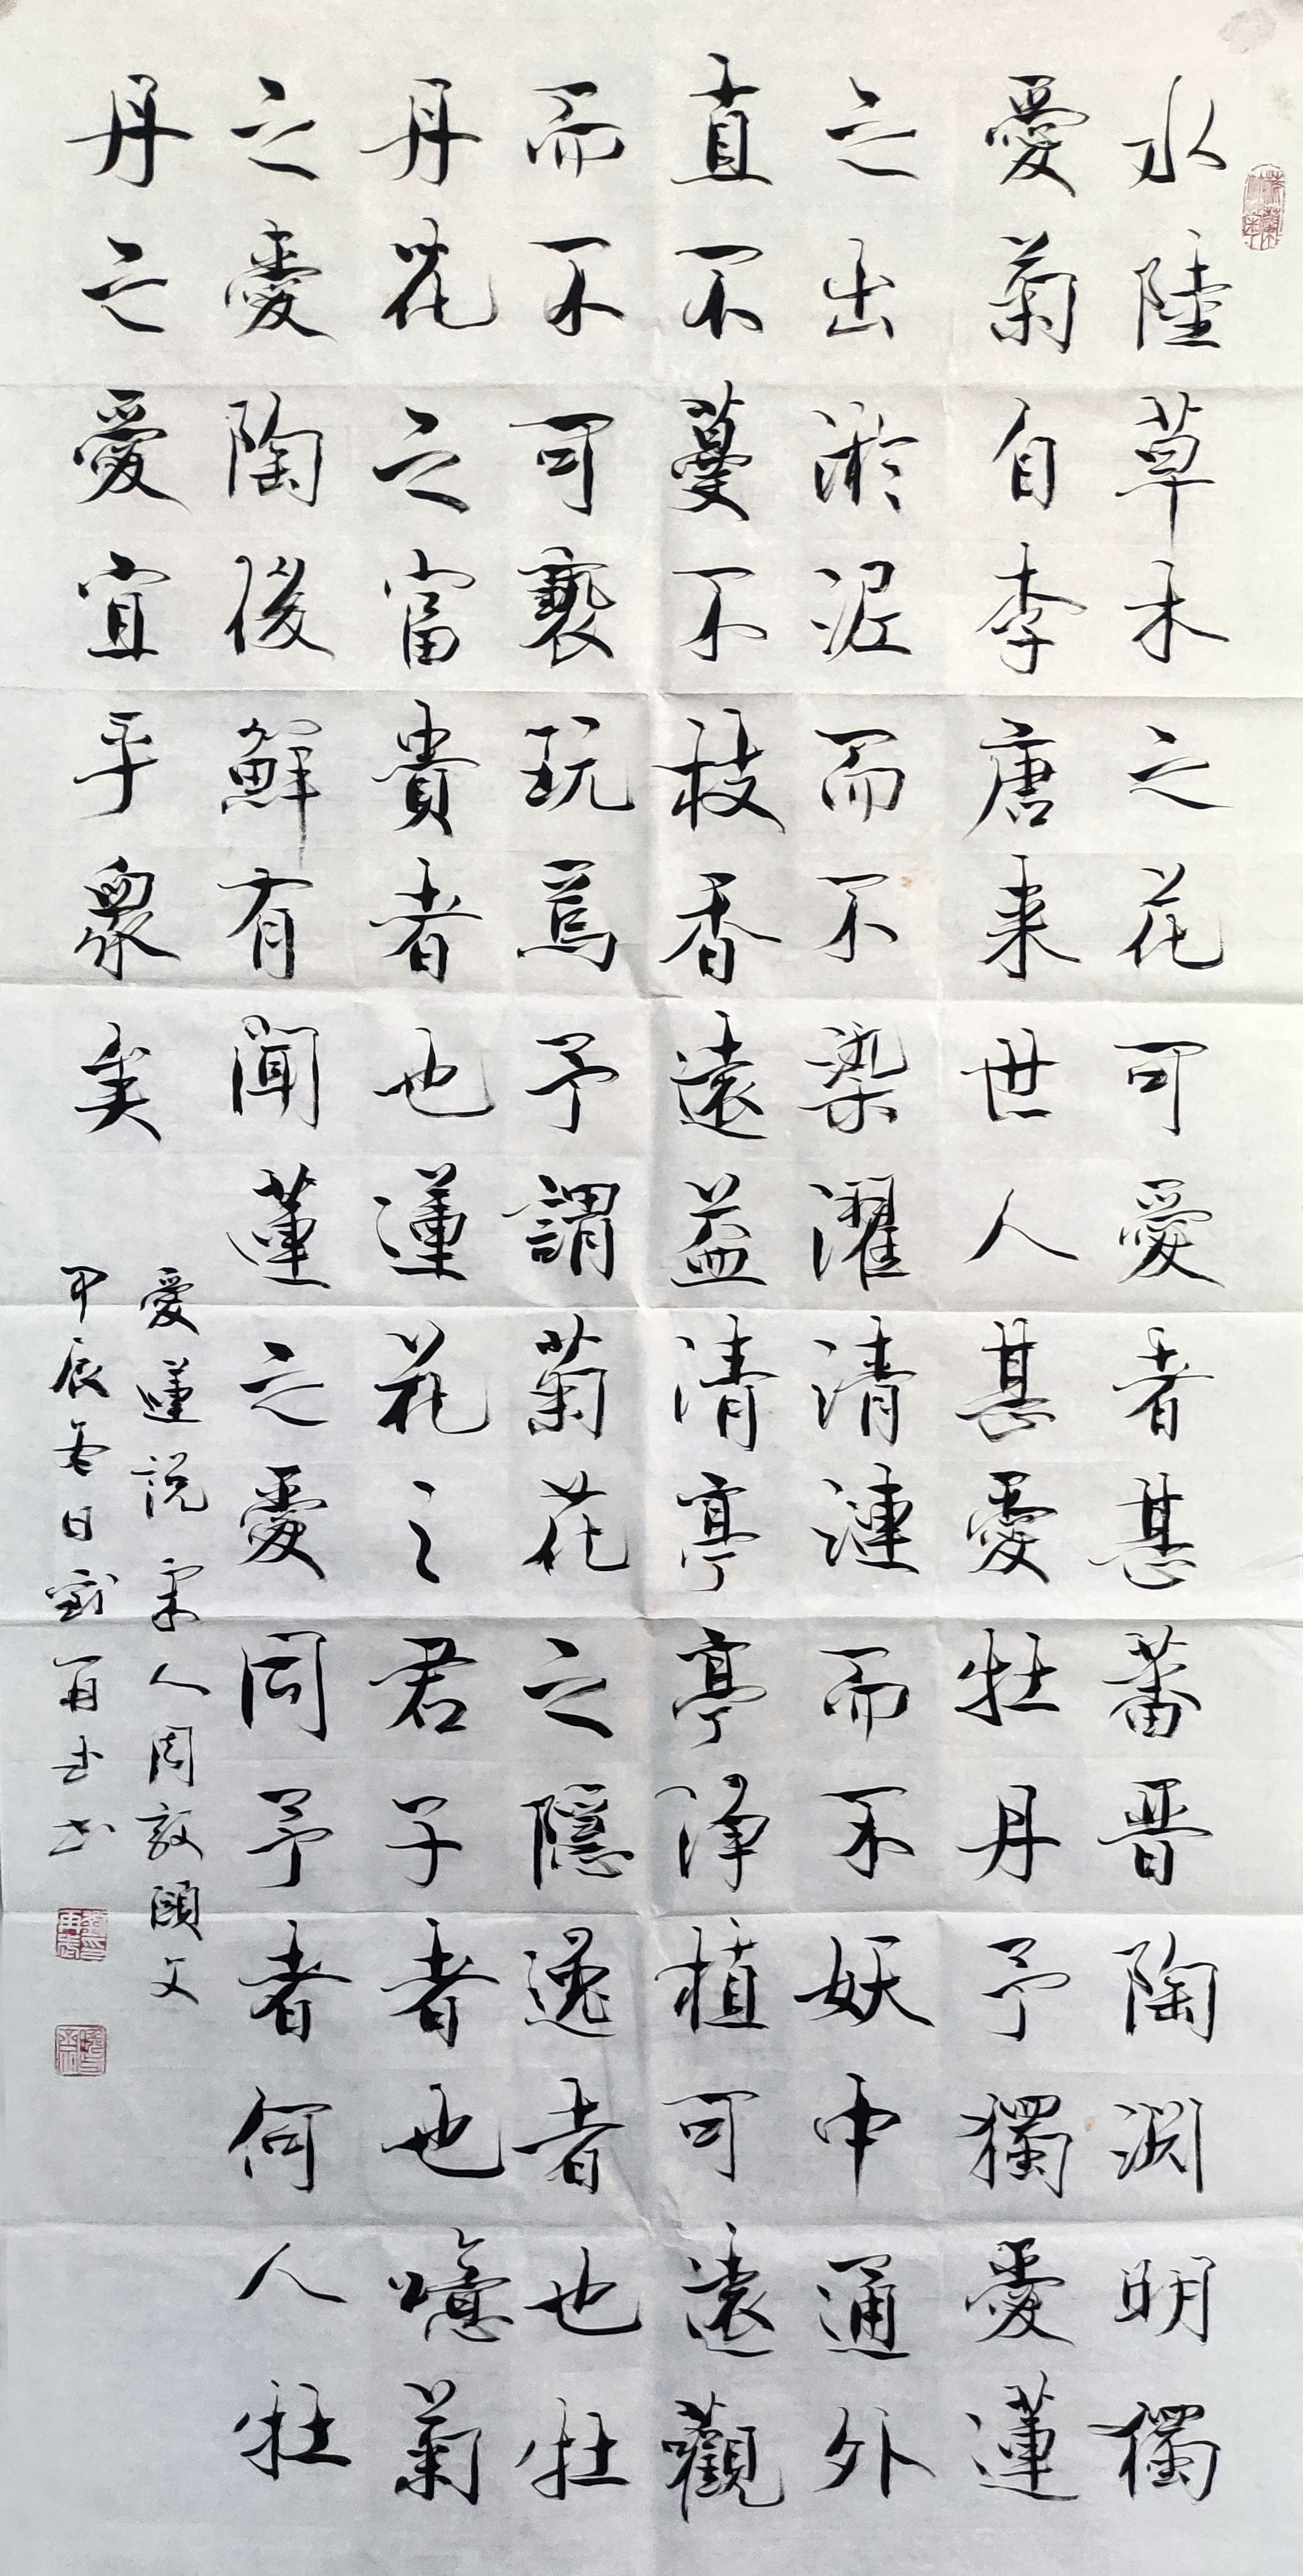 水陸草木之花可愛者甚蕃晋陶淵明獨
愛菊自李唐来世人甚愛牡丹予獨愛蓮
之出淤泥而不染濯清漣而不妖中通外
直不蔓不枝香遠益清亭亭淨植可遠觀
而不可褻玩焉予謂菊花之隱逸者也牡
丹花之富貴者也蓮花之君子者也噫菊
之愛陶後鮮有聞蓮之愛同予者何人牡
丹之愛宜乎衆矣
愛蓮説宋人周敦頤文
甲辰冬日劉再志书